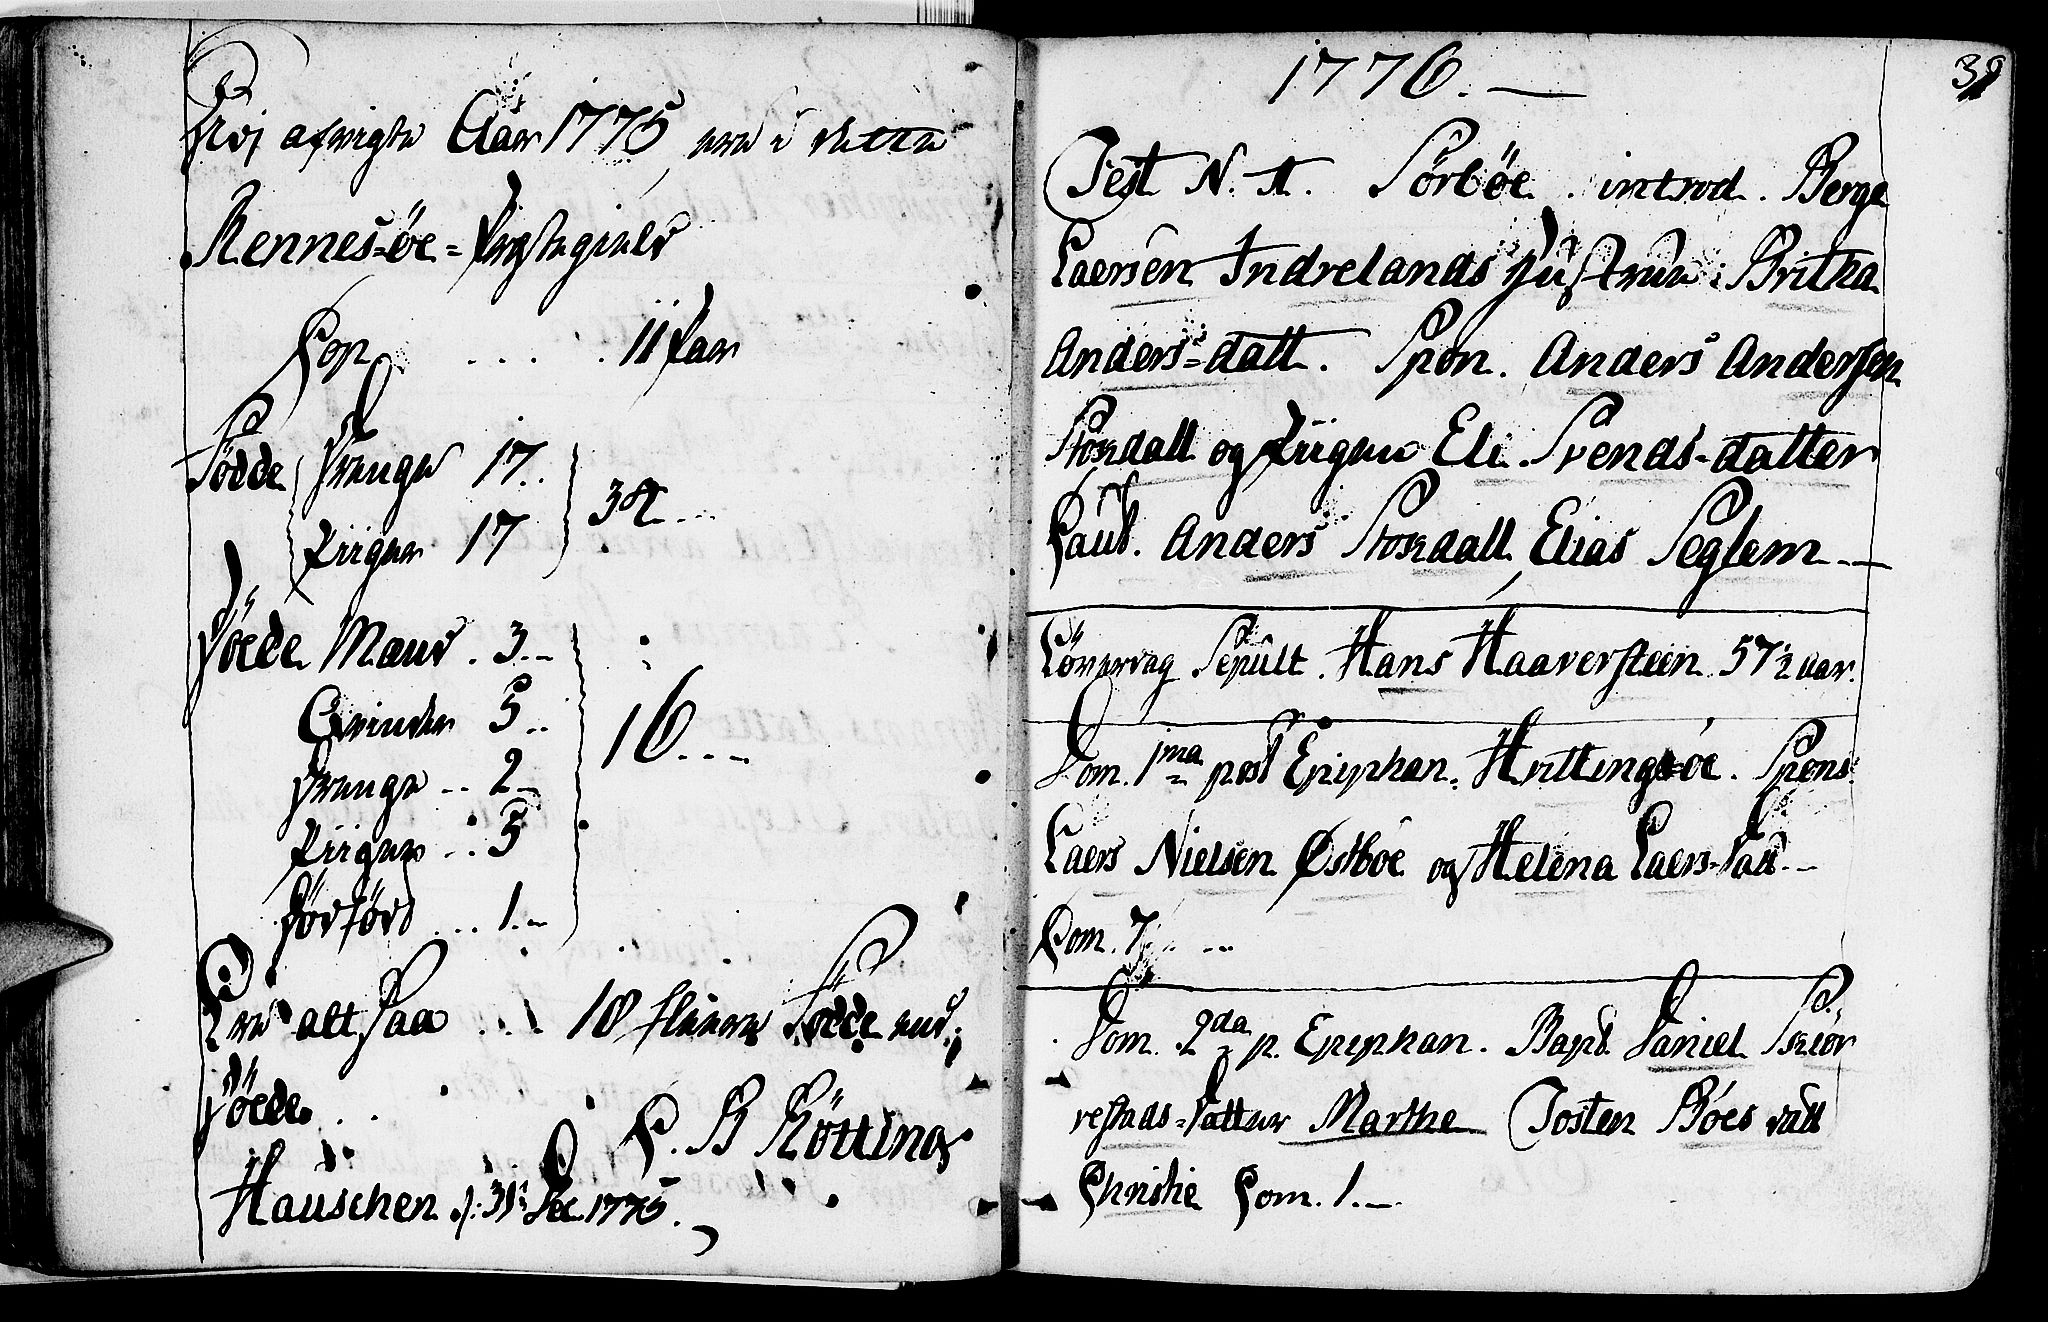 afvigte Aar 1775 ere i dette
Rennes-öe-Præstegield
Cop. . . . . 11 Par
Födde Drenge 17..
34...
Piiger 17
Döede Mænd . 3.-
Qvinder 5..
16...
Drenge .. 2-
Piiger .. 5
Dödföd ... 1.-
Ere alt saa ... 10 fleere Födde end
Döede. . .
C. B Rötting
Hauschen d: 31 Dec. 1775.
1776. —
39
Fest N. A. Sörböe. introd. Berge
Laersen Indrelands Hustrue: Britha
Anders=datt. Spon. Anders Andersen
Stokdall og Piigen Eli Svends-datter
Caut. Anders Stokdall, Elias Seglem.—
Löverdag Sepult. Hans Haaversteen 57½ aar.
Dom. 1ma post Epiphan. Hvittingsöe. Spons:
Laers Nielsen Østböe og Helena Laers-datt.-
Com. 7. . --
Dom. 2da p. Epiphan. Bapt. Daniel Skiör
restads-datter Marthe Josten Böes datt
Christie Com. 1.—